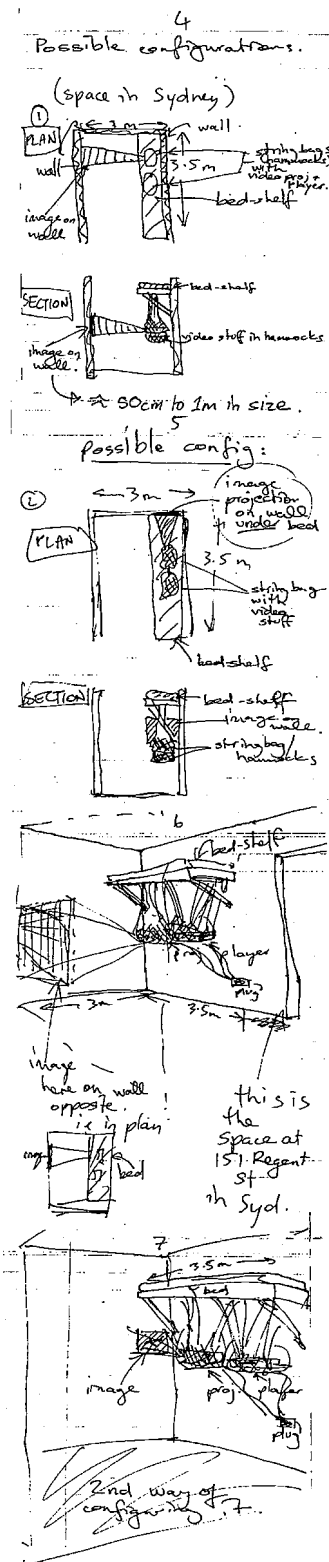 4
Possible configurations.
(space in Sydney)
①
PLAN
3 m
wall
wall
image on
wall
3.5 m
string bags
(hammocks)
with
video proj +
player.
bed-shelf
SECTION
bed-shelf
video stuff in hammocks
image on
wall.
50cm to 1m in size.
5
possible config:
②
3m
image
projection
on wall
under bed
PLAN
3.5 m
string bag
with
video
stuff
bed-shelf
SECTION
bed-shelf
image on
wall.
string bag/
hammocks
6
bed-shelf
proj
player
plug
3m
3.5m
image
here on wall
opposite.
ie in plan
image
bed
this is
the
space at
151 Regent
St
in Syd.
7
3.5m
bed
image
proj
player
plug
2nd way of
configuring